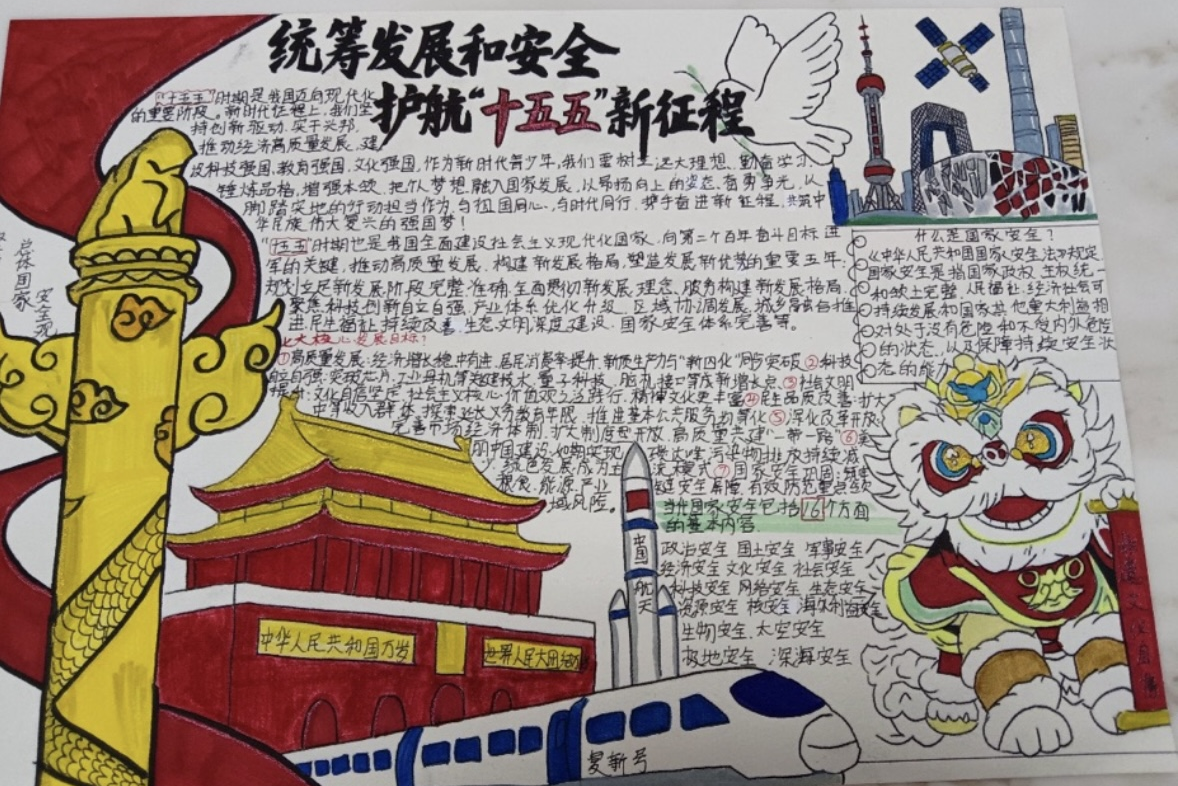 统筹发展和安全
护航“十五五”新征程
“十五五”时期是我国迈向现代化
的重要阶段。新时代征程上,我们坚
持创新驱动、实干兴邦,
推动经济高质量发展,建
设科技强国,教育强国,文化强国,作为新时代青少年,我们要树立远大理想,勤奋学习
锤炼品格,增强本领,把个人梦想融入国家发展,以昂扬向上的姿态,奋勇争先,从
脚踏实地的行动担当作为,与祖国同心,与时代同行,携手奋进新征程,共筑中
华民族伟大复兴的强国梦!
时期也是我国全面建设社会主义现代化国家,向第二个百年奋斗目标进
军的关键,推动高质量发展,构建新发展格局,塑造发展新优势的重要五年,
规划立足新发展阶段完整准确全面贯彻新发展理念,服务构建新发展格局,
聚焦科技创新自立自强,产业体系优化升级,区域协调发展,城乡融合推
进民生福祉持续改善,生态文明深度建设,国家安全体系完善等。
七大核心发展目标?
①高质量发展:经济增长稳中有进,居民消费率提升,新质生产力与“新四化”同步突破②科技
自立自强:突破芯片,工业母机等关键技术,量子科技,脑机接口等成新增长点③社会文明
提升:文化自信坚定,社会主义核心价值观广泛践行,精神文化更丰富④民生品质改善:扩大
中等收入群体,探索延长义务教育年限,推进基本公共服务均等化⑤深化改革开放:
完善市场经济体制,扩大制度型开放,高质量共建“一带一路”⑥美
丽中国建设:如期实现碳达峰,污染物排放持续减
少,绿色发展成为主流模式⑦国家安全巩固:
粮食,能源,产业链安全保障,有效防范重点领
域风险。
什么是国家安全?
《中华人民共和国国家安全法》规定
国家安全是指国家政权、主权、统一
和领土完整、人民福祉、经济社会可
持续发展和国家其他重大利益相
对处于没有危险和不受内外危险
的状态,以及保障持续安全状
态的能力
当代国家安全包括16个方面
的基本内容.
政治安全 国土安全 军事安全
经济安全 文化安全 社会安全
科技安全 网络安全 生态安全
资源安全 核安全 海外利益安全
生物安全 太空安全
极地安全 深海安全
总体国家
安全观
中国航天
中华人民共和国万岁
世界人民大团结万岁
复新号